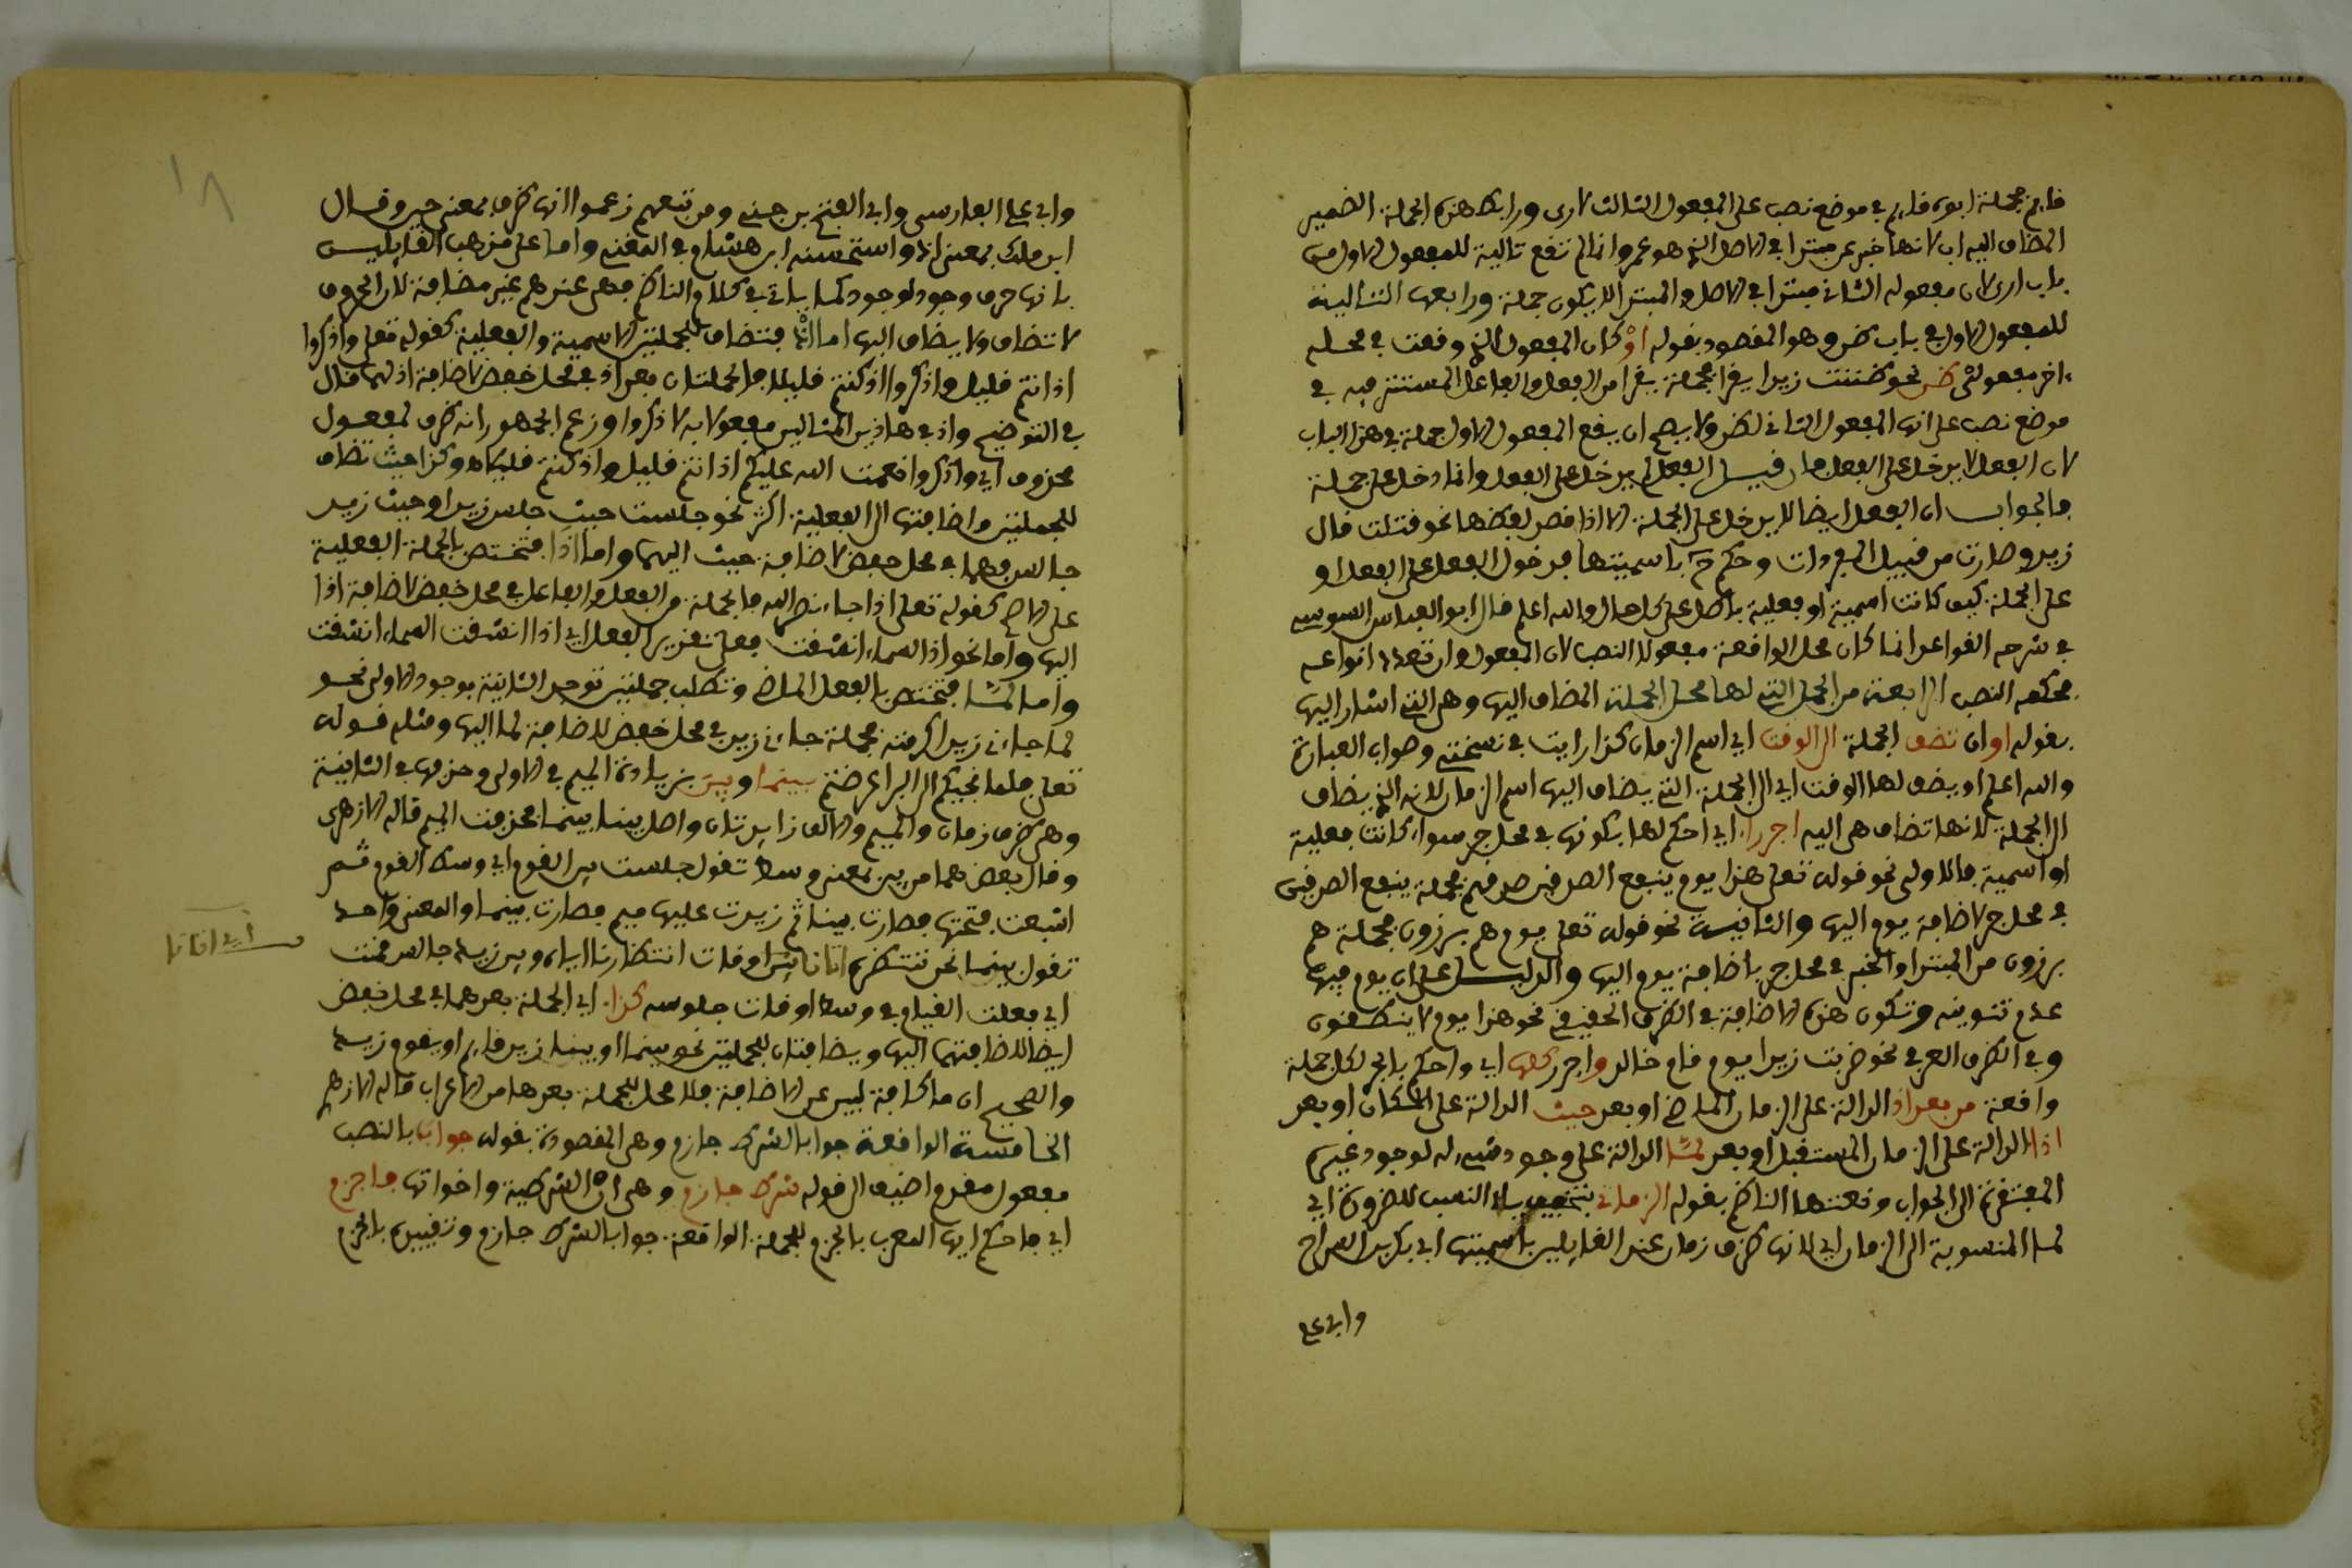 قايم فجملة ابوه قايم في موضع نصب على المفعول الثالث لارى ورابط هذه الجملة الضمير
المضاف اليه اب لانها خبر عن مبتدا في الاصل الذي هو عمرو وانما لم تقع تالية للمفعول الاول من
باب ارى لان مفعوله الثاني مبتدا في الاصل والمبتدا لا يكون جملة ورابعها التالية
للمفعول الاول في باب ظن وهو المقصود بقوله او كان المفعول الذي وقعت في محله
اخر مفعولي ظن نحو ظننت زيدا يقرا فجملة يقرا من الفعل والفاعل المستتر فيه في
موضع نصب على انها المفعول الثاني لظن ولا يصح ان يقع المفعول الاول جملة في هذا الباب
لان الفعل لا يدخل على الفعل فان قيل الفعل لم يدخل على الفعل وانما دخل على جملة
فالجواب ان الفعل ايضا لا يدخل على الجملة الا اذا قصد لفظها نحو قتلت قال
زيد وصارت من قبيل المفردات وحكم باسميتها فدخول الفعل على الفعل او
على الجملة كيف كانت اسمية او فعلية باطل على كل حال والله اعلم قال ابو العباس السوسي
في شرحه القواعد انما كان محل الواقعة مفعولا النصب لان المفعول وان تعددت انواعه
فحكمه النصب الرابعة من الجمل التي لها محل الجملة المضاف اليها وهي التي اشار اليها
بقوله او ان تضف الجملة الى الوقت اي اسم الزمان كذا رايت في نسختي وصواب العبارة
والله اعلم او يضف لها الوقت اي الى الجملة التي يضاف اليها اسم الزمان لانه الذي يضاف
الى الجملة لا انها تضاف هي اليه اجررا اي احكم لها بكونها في محل جر سواء كانت فعلية
او اسمية فالاولى نحو قوله تعلى هذا يوم ينفع الصدقين صدقهم فجملة ينفع الصدقين
في محل جر لاضافة يوم اليها والثانية نحو قوله تعلى يوم هم برزون فجملة هم
برزون من المبتدا والخبر في محل جر باضافة يوم اليها والدليل على ان يوم فيها
عدم تنوينه وتكون هذه الاضافة في الظرف الحقيقي نحو هذا يوم لا ينطقون
وفي الظرف العرفي نحو ضربت زيدا يوم قام خالد واجرر كلها اي واحكم بالجر لكل جملة
واقعة من بعد اذ الدالة على الزمان الماضي او بعد حيث الدالة على المكان او بعد
اذا الدالة على الزمان المستقبل او بعد لما الدالة على وجود شيء له لوجود غيره
المفتقرة الى الجواب ونعتها الناظم بقوله الزماني بتخفيف ياء النسب للضرورة اي
لما المنسوبة الى الزمان اي لانها ظرف زمان عند القايلين باسميتها ابي بكر بن السراج
وابي علي
وابي علي الفارسي وابي الفتح بن جني ومن تبعهم زعموا انها ظرف بمعنى حين وقال
ابن ملك بمعنى اذ واستحسنه ابن هشام في المغني واما على مذهب القايلين
بانها حرف وجود لوجود كما ياتي في كلام الناظم فهي عندهم غير مضافة لان الحروف
لا تضاف ولا يضاف اليها اما اذ فتضاف للجملتين الاسمية والفعلية كقوله تعلى واذكروا
اذ انتم قليل واذكروا اذ كنتم قليلا فالجملتان بعد اذ في محل خفض لاضافة اذ لهما قال
في التوضيح واذ في هاذين المثالين مفعولا به لاذكروا وزعم الجمهور انه ظرف لمفعول
محذوف اي واذكروا نعمت الله عليكم اذ انتم قليل واذ كنتم قليلا اه وكذا حيث تضاف
للجملتين واضافتها الى الفعلية اكثر نحو جلست حيث جلس زيد او حيث زيد
جالس فهما في محل خفض لاضافة حيث اليهما واما اذا فتختص بالجملة الفعلية
على الاصح كقوله تعلى اذا جاء نصر الله فالجملة من الفعل والفاعل في محل خفض لاضافة اذا
اليها واما نحو اذا السماء انشقت فعلى تقدير الفعل اي اذا انشقت السماء انشقت
واما لما فتختص بالفعل الماضي وتطلب جملتين توجد الثانية بوجود الاولى نحو
لما جاءني زيد اكرمته فجملة جاءني زيد في محل خفض لاضافة لما اليها ومثله قوله
تعلى فلما نجيكم الى البر اعرضتم بينما وبين بزيادة الميم في الاولى وحذفها في الثانية
وهي ظرف زمان والميم والالف زايدتان واصل بينا بينما فحذفت الميم قاله الازهري
وقال بعضهما من بين بمعنى وسط تقول جلست بين القوم اي وسط القوم ثم
اشبعت فتحتها فصارت بينا ثم زيدت عليها ميم فصارت بينما والمعنى واحد
تقول بينما نحن ننتظره اتانا اوقات انتظارنا اياه وبين زيد جالس قمت
اي فعلت القيام في وسط اوقات جلوسه كذا اي الجملة بعدهما في محل خفض
ايضا لاضافتهما اليها ويضافتان للجملتين نحو بينما او بينا زيد قايم او يقوم زيد
والصحيح ان ما كافة لبين عن الاضافة فلا محل للجملة بعدها من الاعراب قاله الازهري
الخامسة الواقعة جوابا لشرط جازم وهي المقصودة بقوله جواب بالنصب
مفعول مقدم اضيف الى قوله شرط جازم وهي ان الشرطية واخواتها فاجزم
اي فاحكم ايها المعرب بالجزم للجملة الواقعة جوابا لشرط جازم وتقييده بالجزم
اي اتانا
١٨